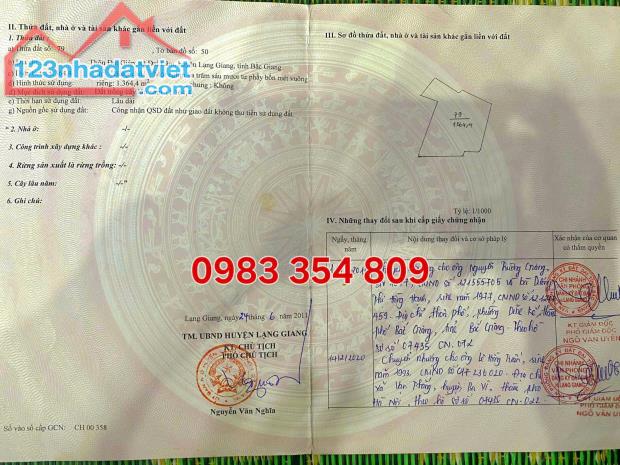 II. Thửa đất, nhà ở và tài sản khác gắn liền với đất
1. Thửa đất:
a) Thửa đất số: 79 , Tờ bản đồ số: 50
Lạng Giang, tỉnh Bắc Giang
trăm sáu mươi tư phẩy bốn mét vuông
d) Hình thức sử dụng: riêng: 1.364,4 m² chung : Không
e) Thời hạn sử dụng: Lâu dài
g) Nguồn gốc sử dụng: Công nhận QSD đất như giao đất không thu tiền sử dụng đất
* 2. Nhà ở: -/-
3. Công trình xây dựng khác: -/-
4. Rừng sản xuất là rừng trồng: -/-
5. Cây lâu năm: -/-
6. Ghi chú:
123nhadatviet.com
Lạng Giang, ngày 24 tháng 6 năm 2011
TM. UBND HUYỆN LẠNG GIANG
KT. CHỦ TỊCH
PHÓ CHỦ TỊCH
Nguyễn Văn Nghĩa
Số vào sổ cấp GCN: CH 00 358
III. Sơ đồ thửa đất, nhà ở và tài sản khác gắn liền với đất
79
1364,4
Tỷ lệ: 1/1000
IV. Những thay đổi sau khi cấp giấy chứng nhận
Ngày, tháng năm
Nội dung thay đổi và cơ sở pháp lý
Xác nhận của cơ quan có thẩm quyền
cho ông Nguyễn
CMND số 121555705 và bà Dương
sinh năm 1977, CMND số
459. Địa chỉ phường Dĩnh Kế, thành
phố Bắc Giang, tỉnh Bắc Giang. Theo hồ
sơ số 07435 CN. 012
Chuyển nhượng cho ông Lê sinh
năm 1993 CMND số 017236020. Địa chỉ
xã Vạn Thắng, huyện Ba Vì, thành phố
Hà Nội, theo hồ sơ số CN-022
CHI NHÁNH
VĂN PHÒNG
ĐĂNG KÝ ĐẤT ĐAI
LẠNG GIANG
KT GIÁM ĐỐC
PHÓ GIÁM ĐỐC
NGÔ VĂN UYÊN
CHI NHÁNH
VĂN PHÒNG
ĐĂNG KÝ ĐẤT ĐAI
LẠNG GIANG
KT GIÁM ĐỐC
PHÓ GIÁM ĐỐC
NGÔ VĂN UYÊN
0983 354 809